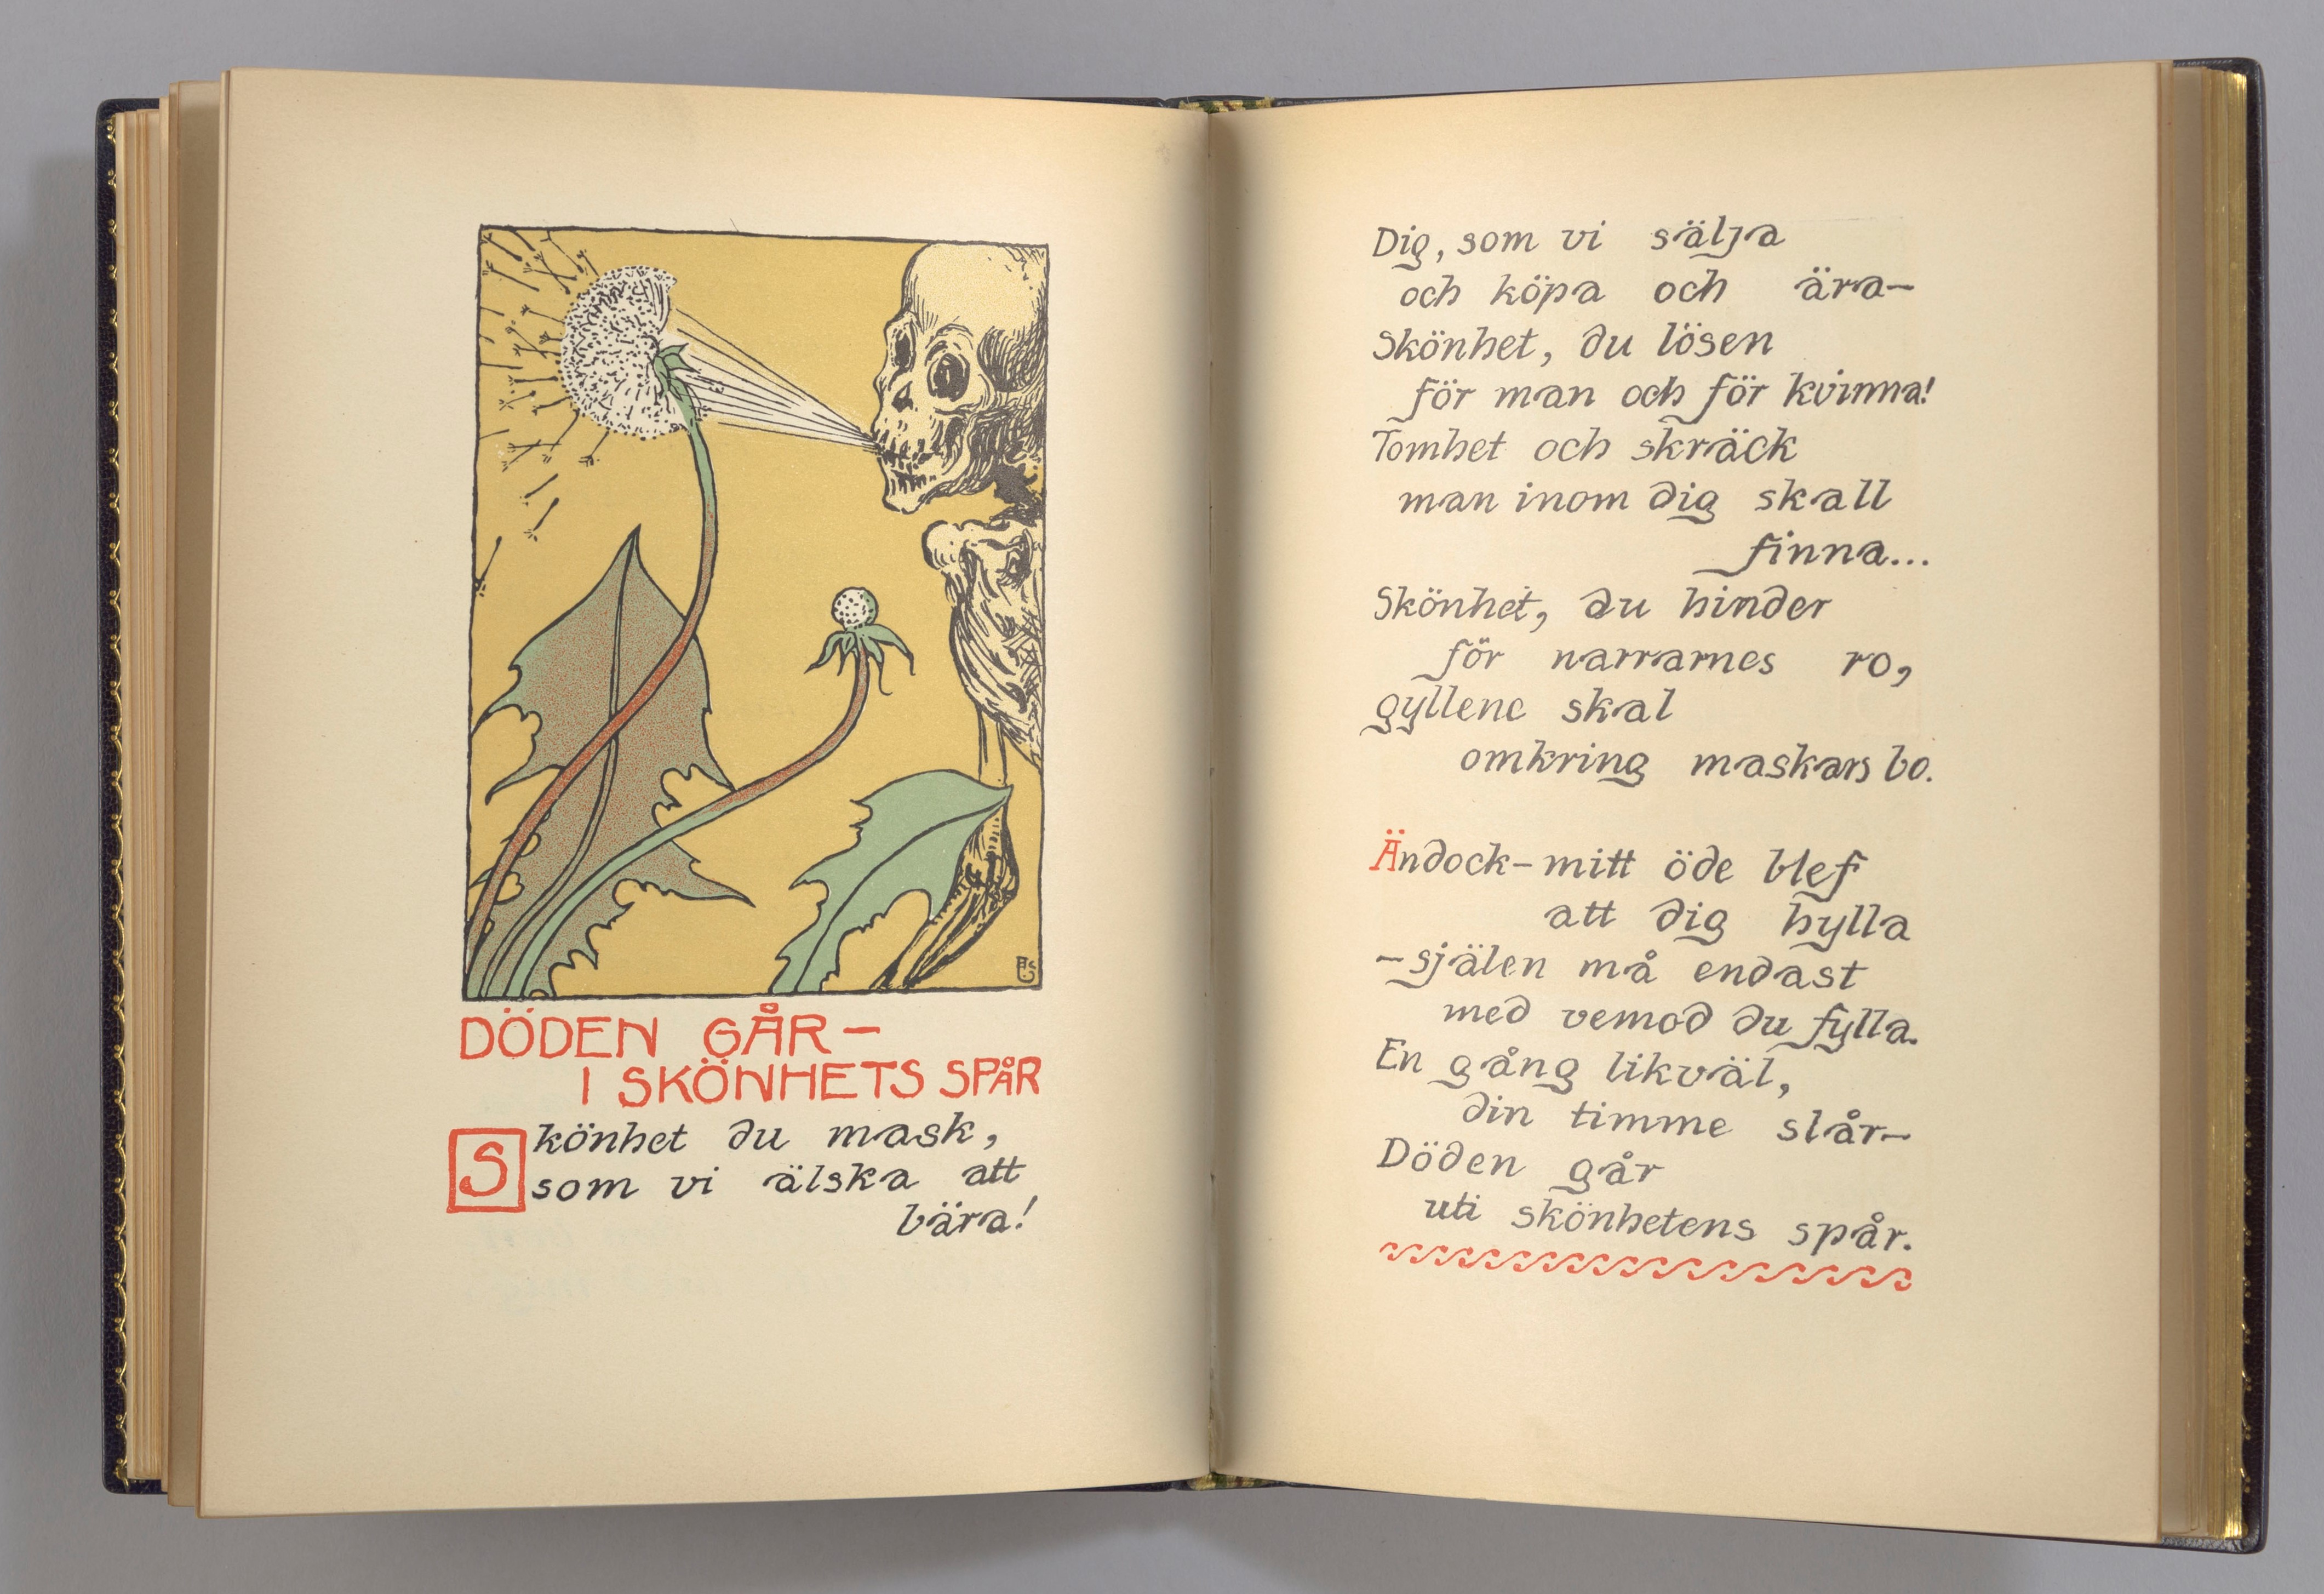 DÖDEN GÅR –
I SKÖNHETS SPÅR
Skönhet du mask,
som vi älska att
bära!
Dig, som vi sälja
och köpa och ära–
Skönhet, du lösen
för man och för kvinna!
Tomhet och skräck
man inom dig skall
finna...
Skönhet, du hinder
för narrarnes ro,
gyllene skal
omkring maskars bo.
Ändock – mitt öde blef
att dig hylla
– själen må endast
med vemod du fylla.
En gång likväl,
din timme slår–
Döden går
uti skönhetens spår.